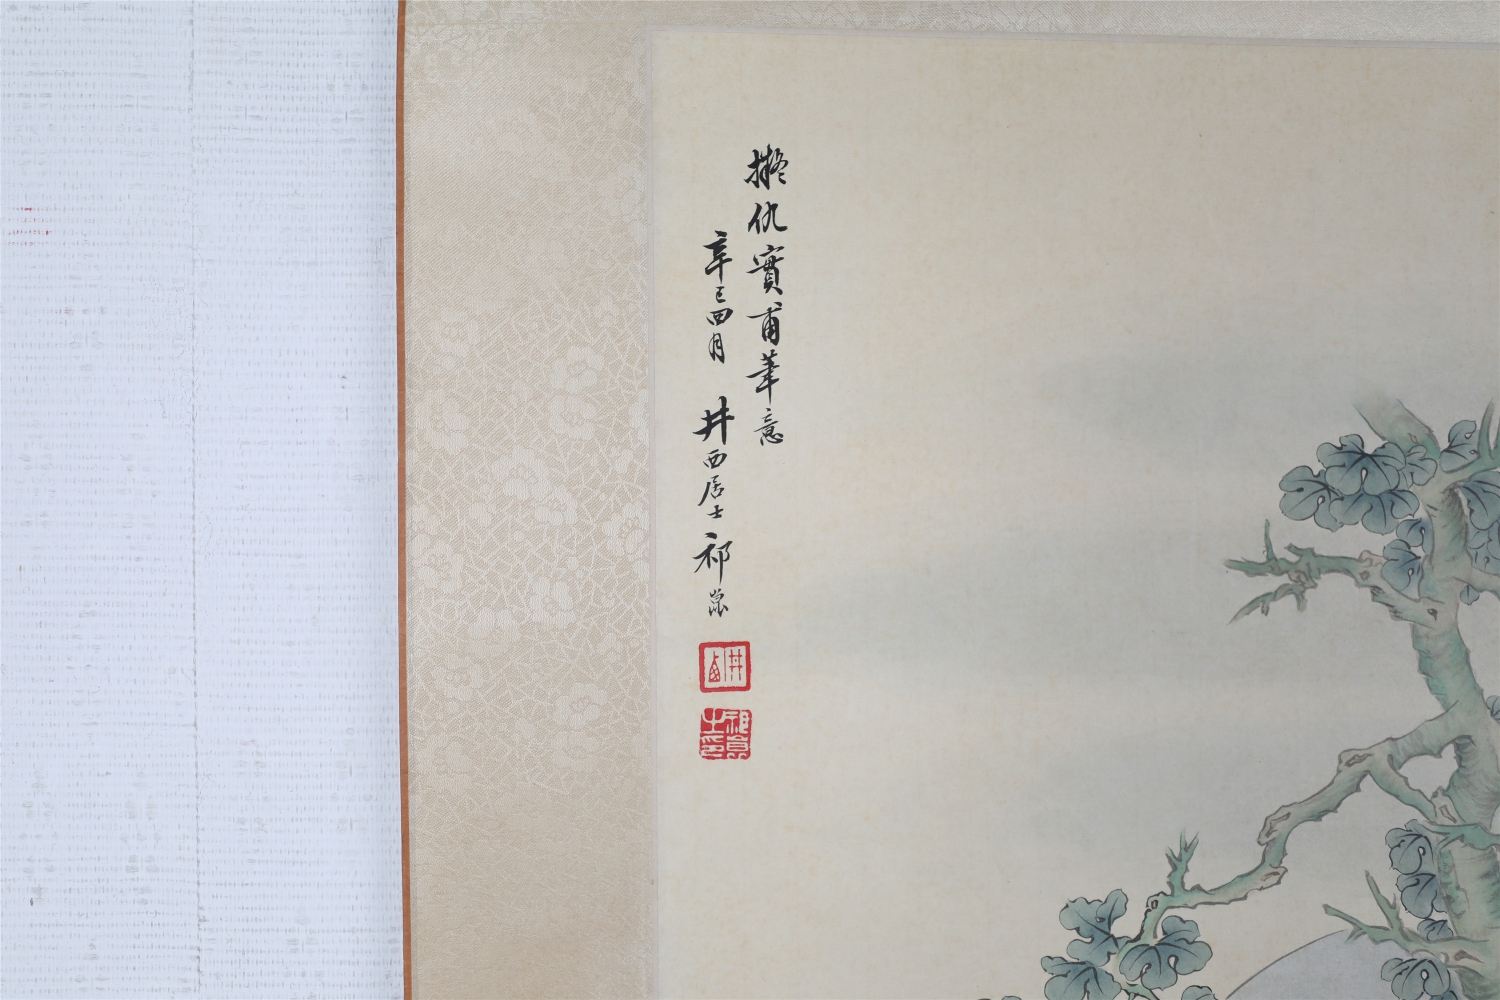 擬仇實甫筆意
辛巳四月 井西居士祁崑
井西
祁崑之印